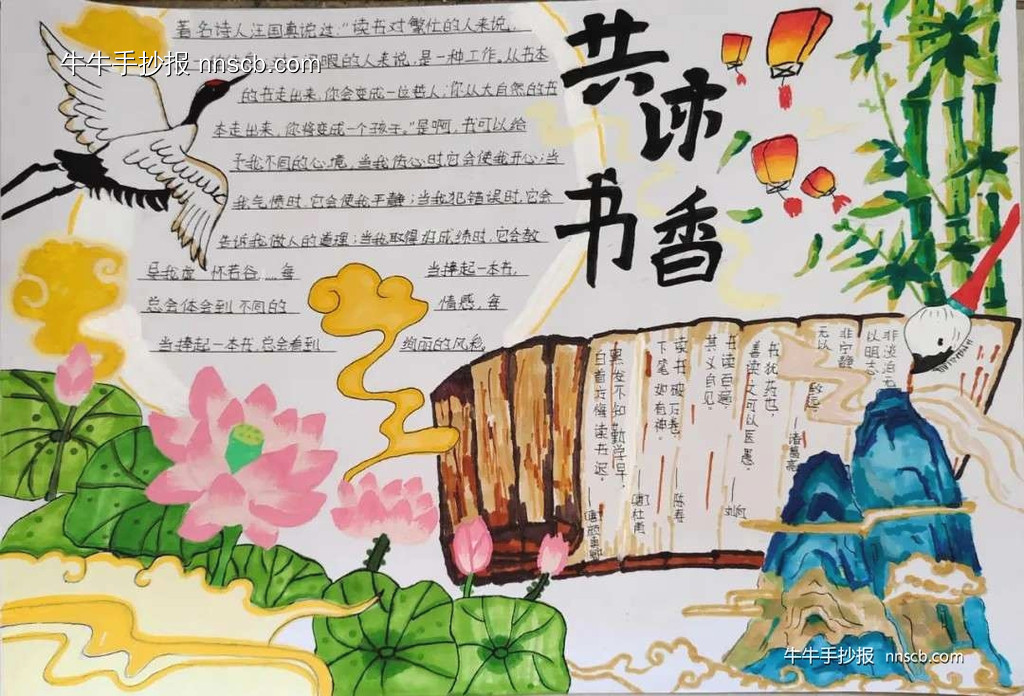 牛牛手抄报 nnscb.com
著名诗人汪国真说过:“读书对繁忙的人来说,
眼的人来说,是一种工作。从书本
的书走出来,你会变成一位哲人;你从大自然的书
本走出来,你将变成一个孩子。”是啊,书可以给
予我不同的心境,当我伤心时它会使我开心;当
我气愤时,它会使我平静;当我犯错误时,它会
告诉我做人的道理;当我取得好成绩时,它会教
导我虚怀若谷……每当捧起一本书,
总会体会到不同的情感,每
当捧起一本书,总会看到绚丽的风彩
共读
书香
非淡泊无
以明志
非宁静
无以
致远。
——诸葛亮
书犹药也,
善读之可以医愚。
——刘向
书读百遍,
其义自见。
——陈寿
读书破万卷
下笔如有神。
——[唐]杜甫
黑发不知勤学早,
白首方悔读书迟。
——[唐]颜真卿
牛牛手抄报 nnscb.com